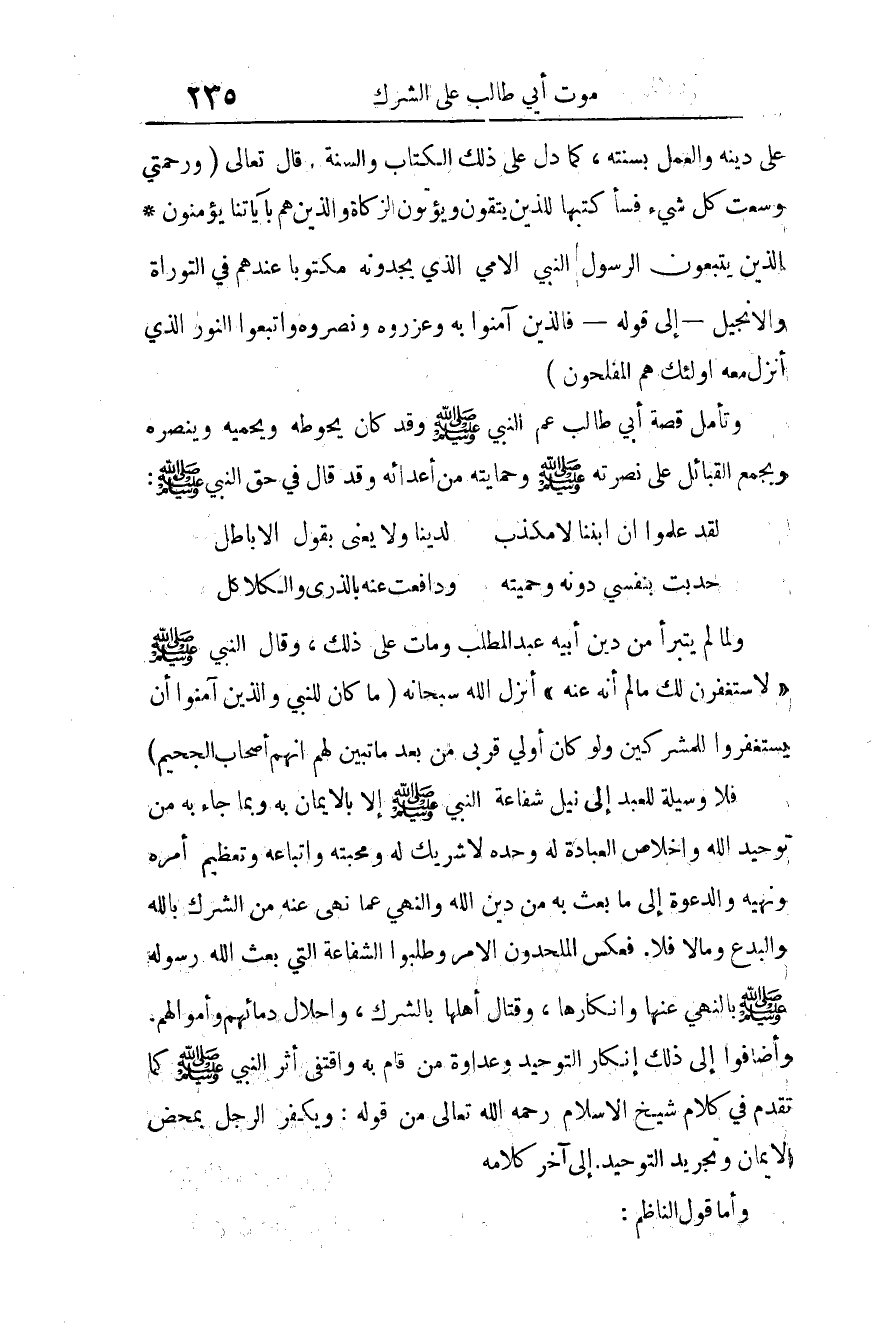 موت أبي طالب على الشرك ٢٣٥
على دينه والعمل بسنته ، كما دل على ذلك الكتاب والسنة . قال تعالى ( ورحمتي
وسعت كل شيء فسأ كتبها للذين يتقون ويؤتون الزكاة والذين هم بآياتنا يؤمنون *
الذين يتبعون الرسول النبي الامي الذي يجدونه مكتوبا عندهم في التوراة
والانجيل — إلى قوله — فالذين آمنوا به وعزروه ونصروه واتبعوا النور الذي
أنزل معه اولئك هم المفلحون )
وتأمل قصة أبي طالب عم النبي ﷺ وقد كان يحوطه ويحميه وينصره
ويجمع القبائل على نصرته ﷺ وحمايته من أعدائه وقد قال في حق النبي ﷺ :
لقد علموا ان ابننا لا مكذب لدينا ولا يعنى بقول الاباطل
حدبت بنفسي دونه وحميته ودافعت عنه بالذرى والكلاكل
ولما لم يتبرأ من دين أبيه عبدالمطلب ومات على ذلك ، وقال النبي ﷺ
« لاستغفرن لك مالم أنه عنه » أنزل الله سبحانه ( ما كان للنبي والذين آمنوا أن
يستغفروا للمشركين ولو كان أولي قربى من بعد ماتبين لهم انهم أصحاب الجحيم)
فلا وسيلة للعبد إلى نيل شفاعة النبي ﷺ إلا بالايمان به وبما جاء به من
توحيد الله واخلاص العبادة له وحده لاشريك له ومحبته واتباعه وتعظيم أمره
ونهيه والدعوة إلى ما بعث به من دين الله والنهي عما نهى عنه من الشرك بالله
والبدع ومالا فلا. فعكس الملحدون الامر وطلبوا الشفاعة التي بعث الله رسوله
ﷺ بالنهي عنها وانكارها ، وقتال أهلها بالشرك ، واحلال دمائهم وأموالهم.
وأضافوا إلى ذلك إنكار التوحيد وعداوة من قام به واقتفى أثر النبي ﷺ كما
تقدم في كلام شيخ الاسلام رحمه الله تعالى من قوله : ويكفر الرجل بمحض
الايمان وتجريد التوحيد. إلى آخر كلامه
وأما قول الناظم :